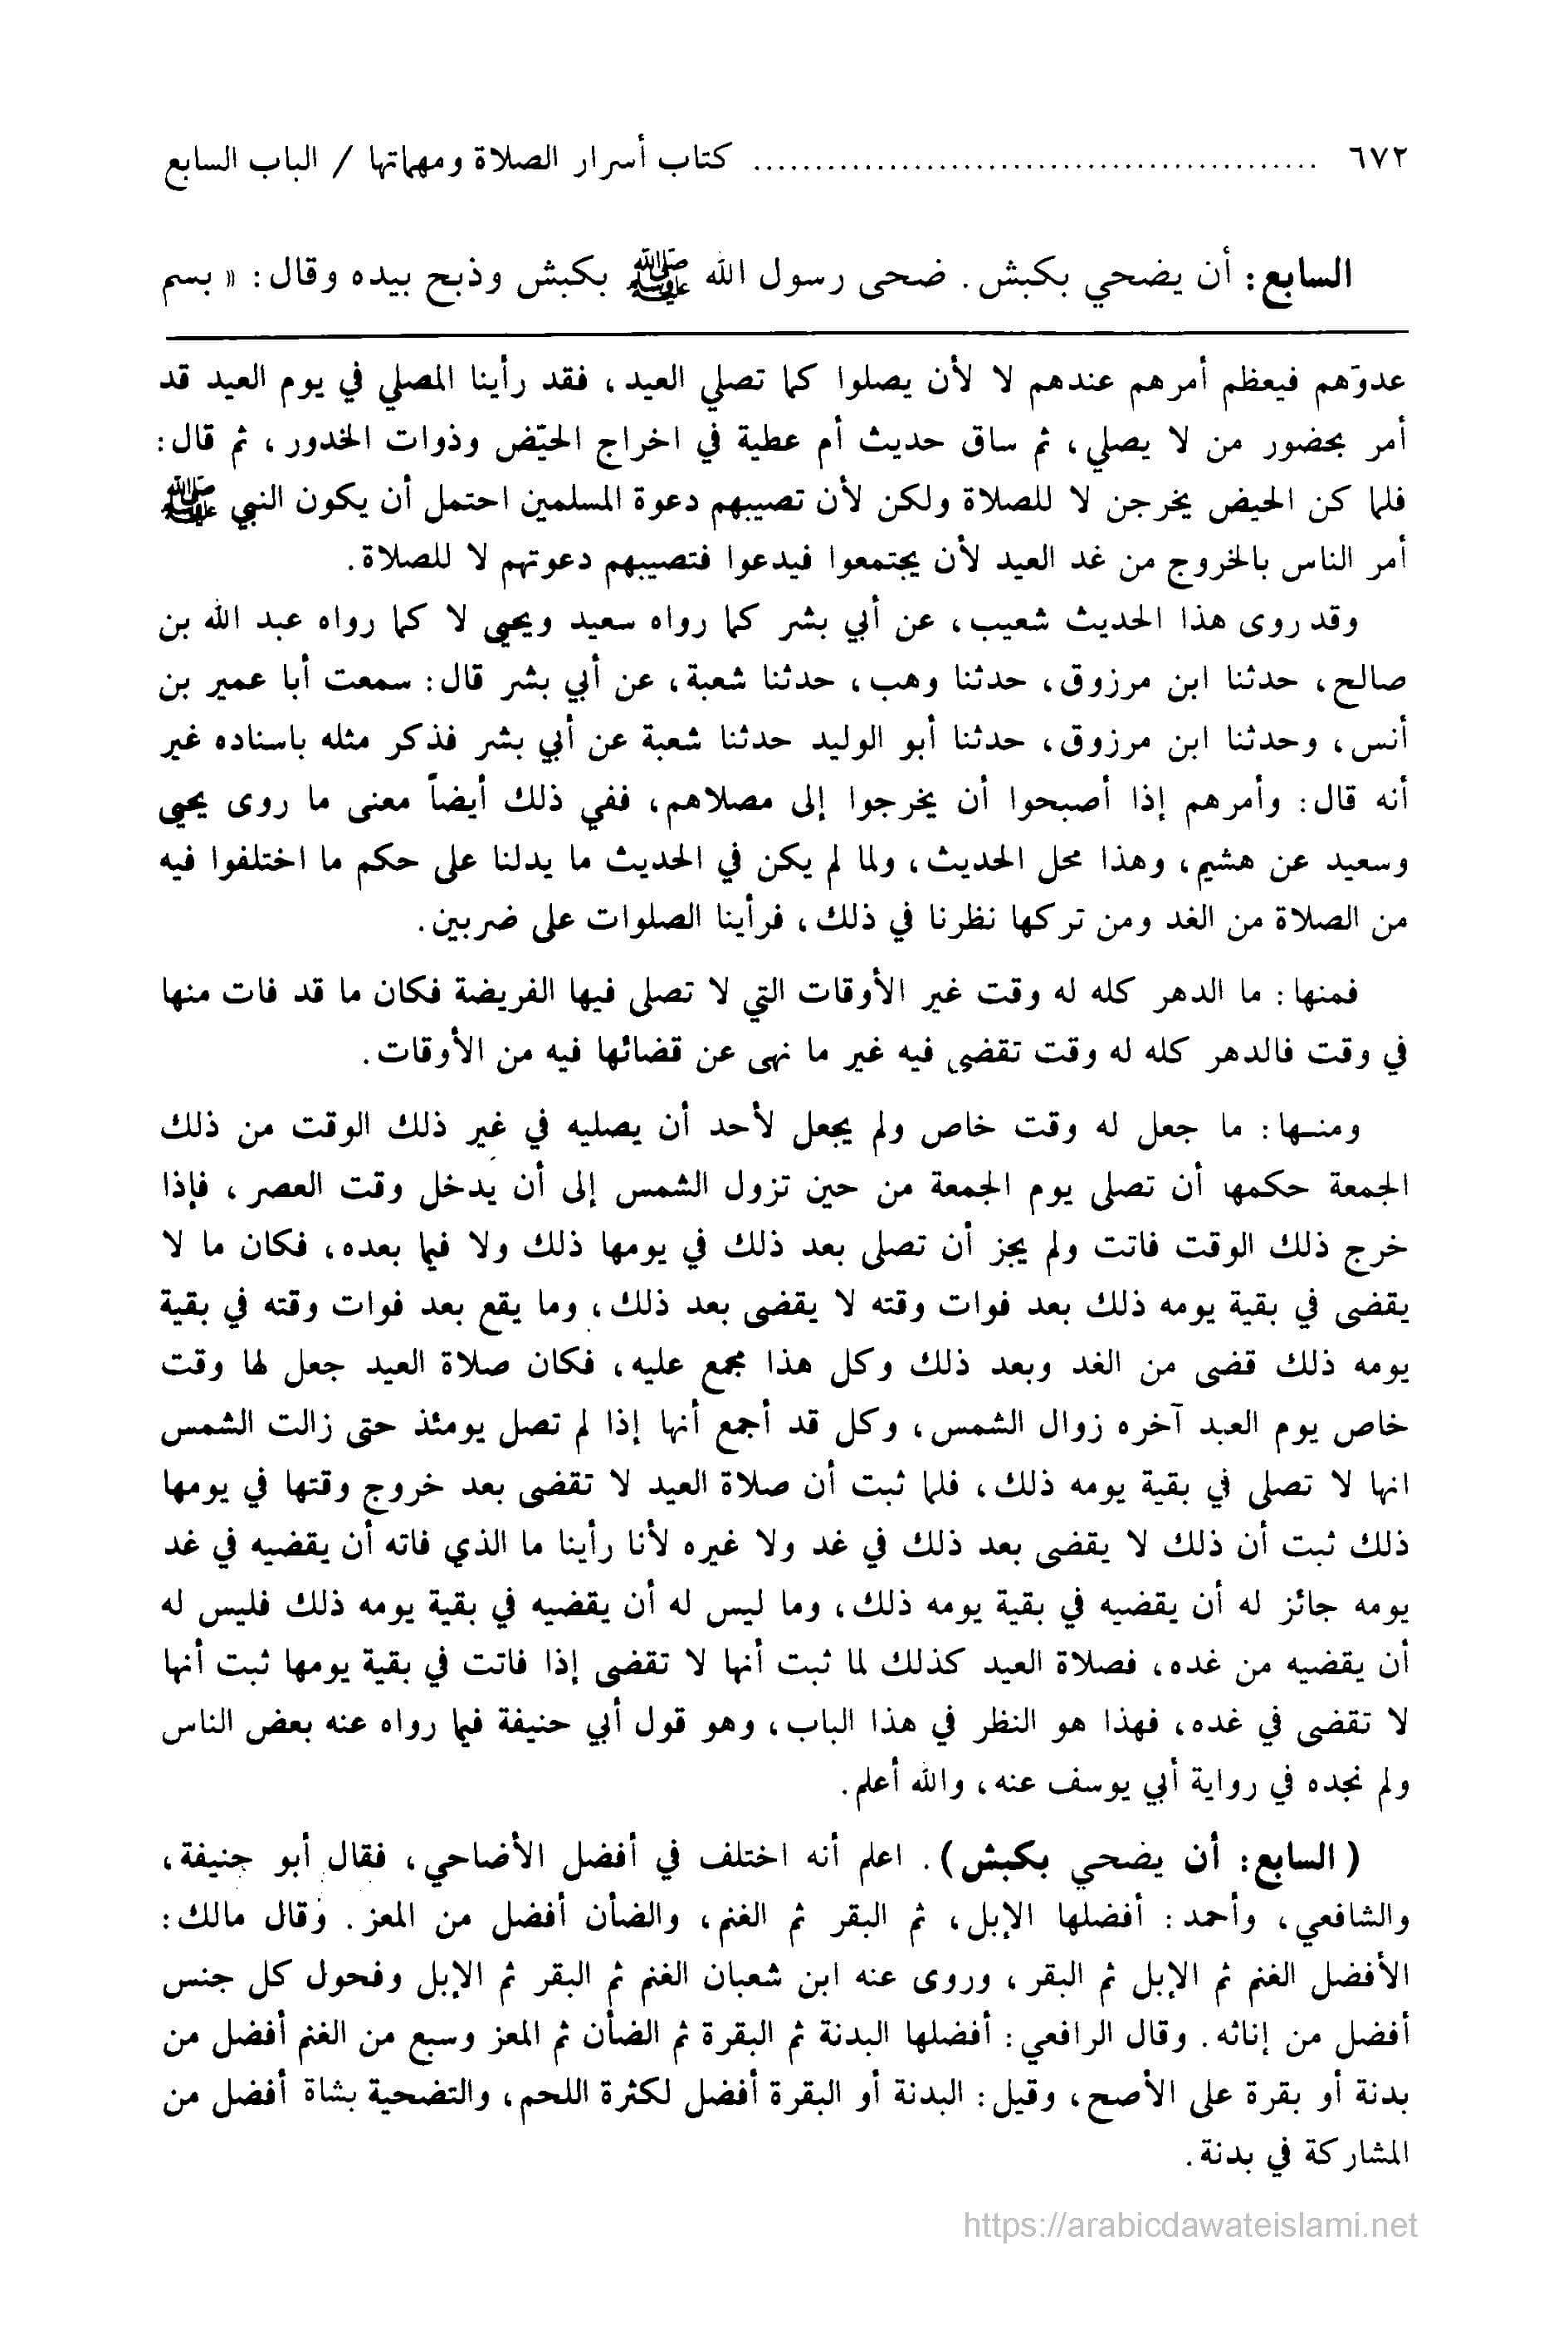 ٦٧٢ .............................................. كتاب أسرار الصلاة ومهماتها / الباب السابع
السابع: أن يضحي بكبش. ضحى رسول الله ﷺ بكبش وذبح بيده وقال: « بسم
عدوّهم فيعظم أمرهم عندهم لا لأن يصلوا كما تصلي العيد، فقد رأينا المصلي في يوم العيد قد
أمر بحضور من لا يصلي، ثم ساق حديث أم عطية في اخراج الحيّض وذوات الخدور، ثم قال:
فلما كن الحيض يخرجن لا للصلاة ولكن لأن تصيبهم دعوة المسلمين احتمل أن يكون النبي ﷺ
أمر الناس بالخروج من غد العيد لأن يجتمعوا فيدعوا فتصيبهم دعوتهم لا للصلاة.
وقد روى هذا الحديث شعيب، عن أبي بشر كما رواه سعيد ويحيى لا كما رواه عبد الله بن
صالح، حدثنا ابن مرزوق، حدثنا وهب، حدثنا شعبة، عن أبي بشر قال: سمعت أبا عمير بن
أنس، وحدثنا ابن مرزوق، حدثنا أبو الوليد حدثنا شعبة عن أبي بشر فذكر مثله باسناده غير
أنه قال: وأمرهم إذا أصبحوا أن يخرجوا إلى مصلاهم، ففي ذلك أيضاً معنى ما روى يحيى
وسعيد عن هشيم، وهذا محل الحديث، ولما لم يكن في الحديث ما يدلنا على حكم ما اختلفوا فيه
من الصلاة من الغد ومن تركها نظرنا في ذلك، فرأينا الصلوات على ضربين.
فمنها: ما الدهر كله له وقت غير الأوقات التي لا تصلى فيها الفريضة فكان ما قد فات منها
في وقت فالدهر كله له وقت تقضى فيه غير ما نهى عن قضائها فيه من الأوقات.
ومنـها: ما جعل له وقت خاص ولم يجعل لأحد أن يصليه في غير ذلك الوقت من ذلك
الجمعة حكمها أن تصلى يوم الجمعة من حين تزول الشمس إلى أن يدخل وقت العصر، فإذا
خرج ذلك الوقت فاتت ولم يجز أن تصلى بعد ذلك في يومها ذلك ولا فيما بعده، فكان ما لا
يقضى في بقية يومه ذلك بعد فوات وقته لا يقضى بعد ذلك، وما يقع بعد فوات وقته في بقية
يومه ذلك قضى من الغد وبعد ذلك وكل هذا مجمع عليه، فكان صلاة العيد جعل لها وقت
خاص يوم العبد آخره زوال الشمس، وكل قد أجمع أنها إذا لم تصل يومئذ حتى زالت الشمس
انها لا تصلى في بقية يومه ذلك، فلما ثبت أن صلاة العيد لا تقضى بعد خروج وقتها في يومها
ذلك ثبت أن ذلك لا يقضى بعد ذلك في غد ولا غيره لأنا رأينا ما الذي فاته أن يقضيه في غد
يومه جائز له أن يقضيه في بقية يومه ذلك، وما ليس له أن يقضيه في بقية يومه ذلك فليس له
أن يقضيه من غده، فصلاة العيد كذلك لما ثبت أنها لا تقضى إذا فاتت في بقية يومها ثبت أنها
لا تقضى في غده، فهذا هو النظر في هذا الباب، وهو قول أبي حنيفة فيما رواه عنه بعض الناس
ولم نجده في رواية أبي يوسف عنه، والله أعلم.
( السابع: أن يضحي بكبش). اعلم أنه اختلف في أفضل الأضاحي، فقال أبو حنيفة،
والشافعي، وأحمد: أفضلها الإبل، ثم البقر ثم الغنم، والضأن أفضل من المعز. وقال مالك:
الأفضل الغنم ثم الإبل ثم البقر، وروى عنه ابن شعبان الغنم ثم البقر ثم الإبل وفحول كل جنس
أفضل من إناثه. وقال الرافعي: أفضلها البدنة ثم البقرة ثم الضأن ثم المعز وسبع من الغنم أفضل من
بدنة أو بقرة على الأصح، وقيل: البدنة أو البقرة أفضل لكثرة اللحم، والتضحية بشاة أفضل من
المشاركة في بدنة.
https://arabicdawateislami.net